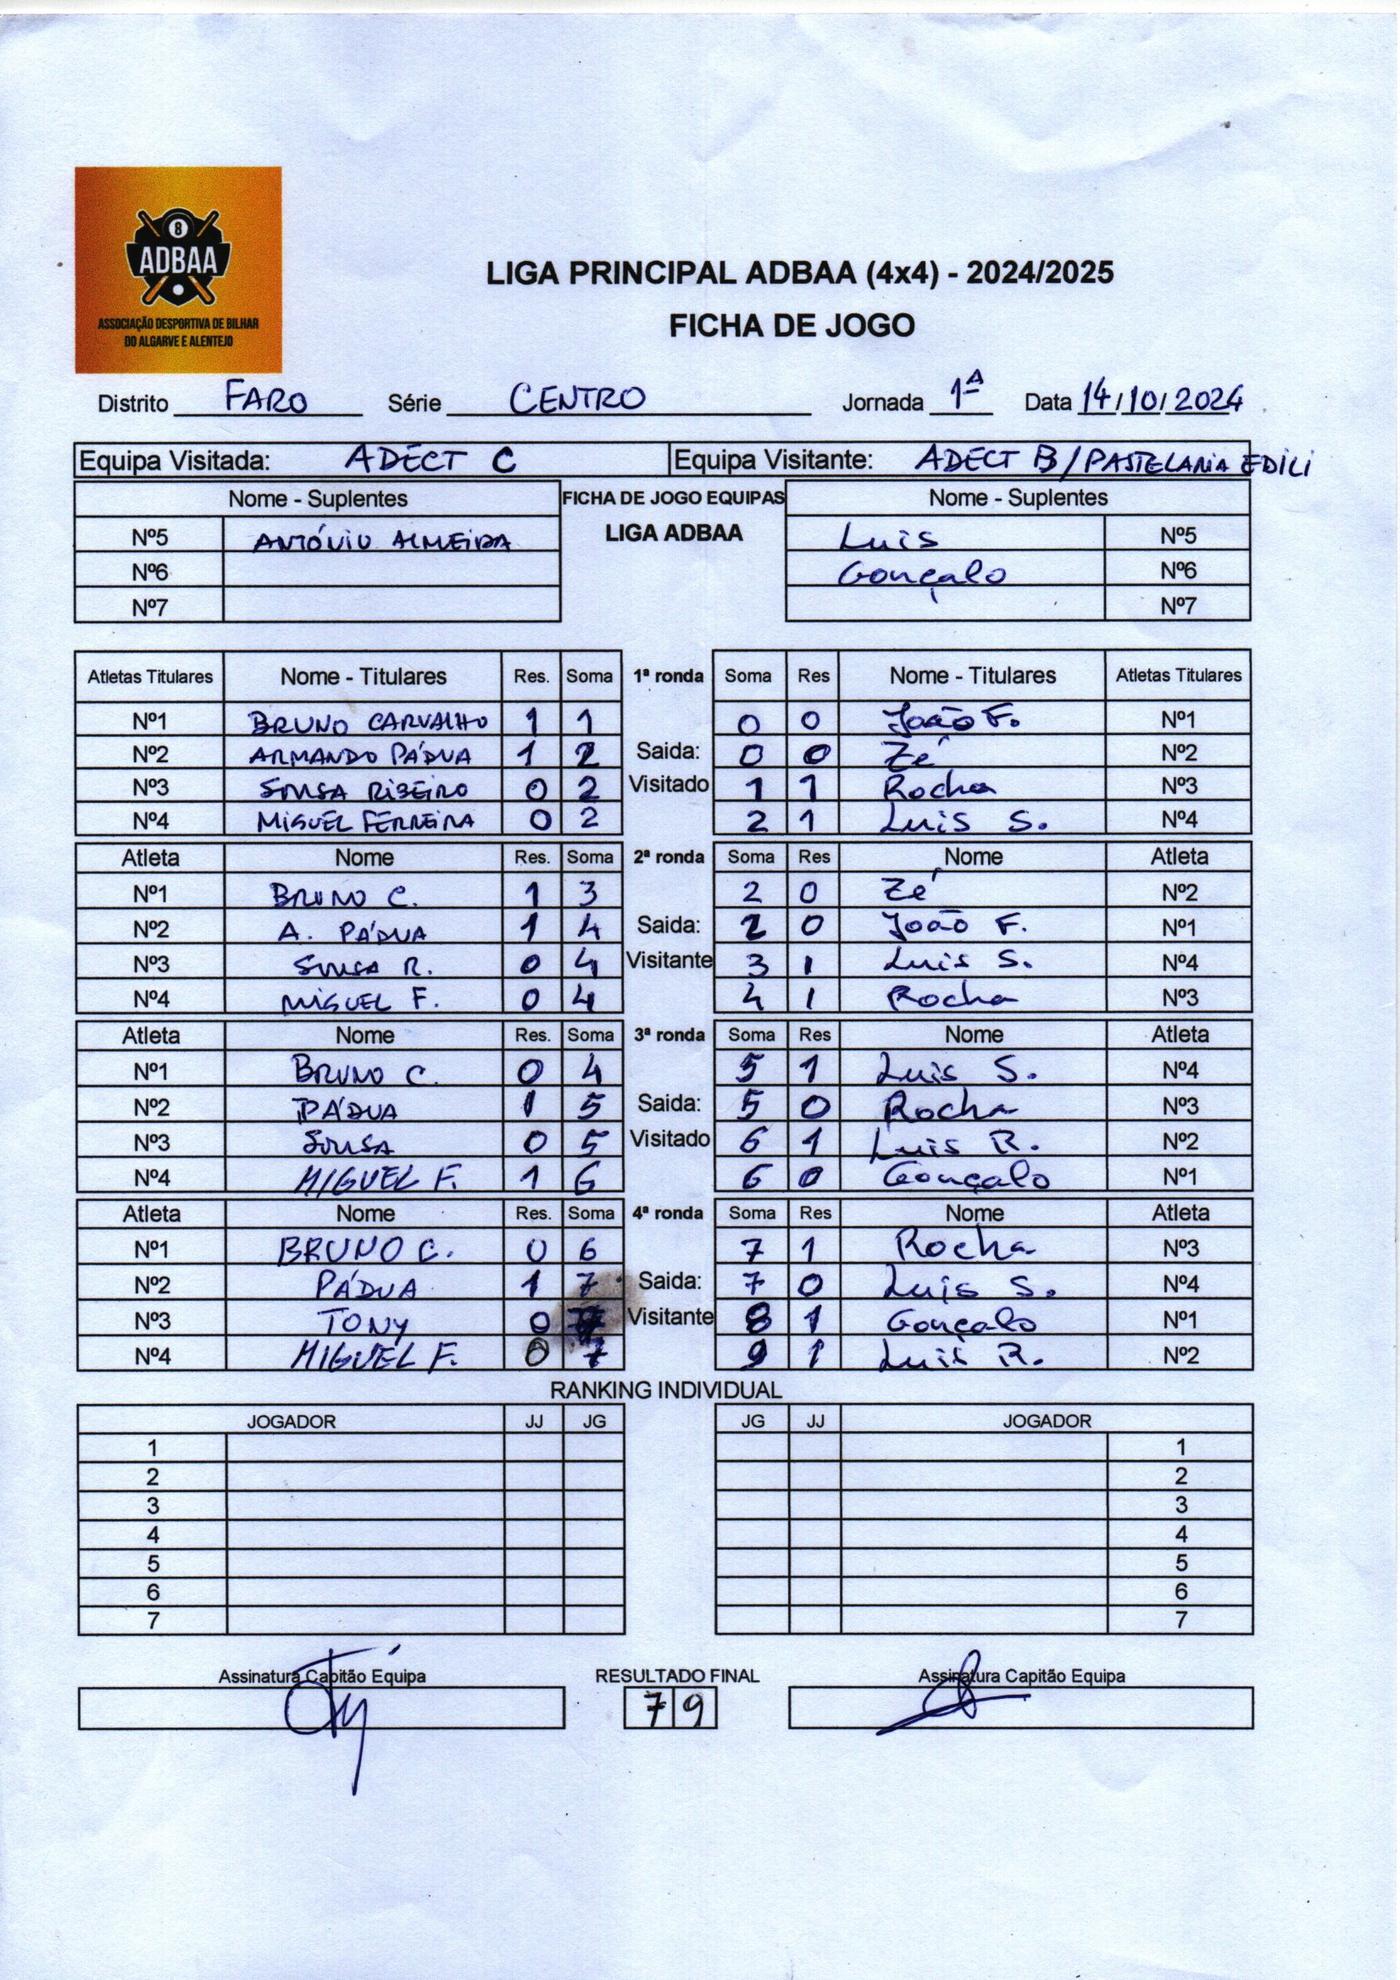 8
ADBAA
ASSOCIAÇÃO DESPORTIVA DE BILHAR
DO ALGARVE E ALENTEJO
LIGA PRINCIPAL ADBAA (4x4) - 2024/2025
FICHA DE JOGO
Distrito FARO Série CENTRO Jornada 1ª Data 14/10/2024
Equipa Visitada: ADECT C Equipa Visitante: ADECT B/PASTELARIA EDILI
Nome - Suplentes FICHA DE JOGO EQUIPAS Nome - Suplentes
Nº5 ANTÓNIO ALMEIDA LIGA ADBAA Luis Nº5
Nº6 Gonçalo Nº6
Nº7 Nº7
Atletas Titulares Nome - Titulares Res. Soma 1ª ronda Soma Res Nome - Titulares Atletas Titulares
Nº1 BRUNO CARVALHO 1 1 0 0 João F. Nº1
Nº2 ARMANDO PÁDUA 1 2 Saida: 0 0 Zé Nº2
Nº3 SOUSA RIBEIRO 0 2 Visitado 1 1 Rocha Nº3
Nº4 MIGUEL FERREIRA 0 2 2 1 Luis S. Nº4
Atleta Nome Res. Soma 2ª ronda Soma Res Nome Atleta
Nº1 BRUNO C. 1 3 2 0 Zé Nº2
Nº2 A. PÁDUA 1 4 Saida: 2 0 João F. Nº1
Nº3 SOUSA R. 0 4 Visitante 3 1 Luis S. Nº4
Nº4 MIGUEL F. 0 4 4 1 Rocha Nº3
Atleta Nome Res. Soma 3ª ronda Soma Res Nome Atleta
Nº1 BRUNO C. 0 4 5 1 Luis S. Nº4
Nº2 PÁDUA 1 5 Saida: 5 0 Rocha Nº3
Nº3 SOUSA 0 5 Visitado 6 1 Luis R. Nº2
Nº4 MIGUEL F. 1 6 6 0 Gonçalo Nº1
Atleta Nome Res. Soma 4ª ronda Soma Res Nome Atleta
Nº1 BRUNO C. 0 6 7 1 Rocha Nº3
Nº2 PÁDUA 1 7 Saida: 7 0 Luis S. Nº4
Nº3 TONY 0 Visitante 8 1 Gonçalo Nº1
Nº4 MIGUEL F. 0 7 9 1 Luis R. Nº2
RANKING INDIVIDUAL
JOGADOR JJ JG JG JJ JOGADOR
1 1
2 2
3 3
4 4
5 5
6 6
7 7
Assinatura Capitão Equipa RESULTADO FINAL Assinatura Capitão Equipa
7 9